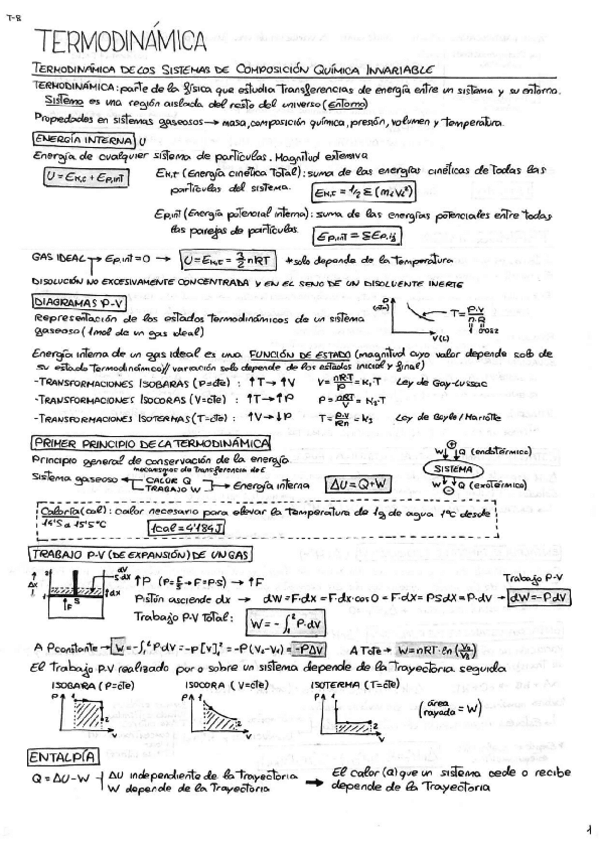 T-8
TERMODINÁMICA
TERMODINÁMICA DE LOS SISTEMAS DE COMPOSICIÓN QUÍMICA INVARIABLE
TERMODINÁMICA: parte de la física que estudia transferencias de energía entre un sistema y su entorno.
Sistema es una región aislada del resto del universo (Entorno)
Propiedades en sistemas gaseosos → masa, composición química, presión, volumen y temperatura.
ENERGÍA INTERNA U
Energía de cualquier sistema de partículas. Magnitud extensiva
U = Ek,t + Ep,int
Ek,t (Energía cinética total): suma de las energías cinéticas de todas las
partículas del sistema. Ek,t = 1/2 Σ (mi vi²)
Ep,int (Energía potencial interna): suma de las energías potenciales entre todas
las parejas de partículas. Ep,int = ΣEp,ij
GAS IDEAL → Ep,int = 0 → U = Ek,t = 3/2 nRT *solo depende de la temperatura
DISOLUCIÓN NO EXCESIVAMENTE CONCENTRADA Y EN EL SENO DE UN DISOLVENTE INERTE
DIAGRAMAS P-V
Representación de los estados termodinámicos de un sistema
gaseoso (1mol de un gas ideal)
P (atm)
V(L)
T = P·V / n·R
1 0'082
Energía interna de un gas ideal es una FUNCIÓN DE ESTADO (magnitud cuyo valor depende solo de
su estado termodinámico // variación solo depende de los estados inicial y final)
-TRANSFORMACIONES ISOBARAS (P=cte): ↑T → ↑V V = nR·T/P = K₁·T Ley de Gay-Lussac
-TRANSFORMACIONES ISOCORAS (V=cte): ↑T → ↑P P = nRT/V = K₂·T
-TRANSFORMACIONES ISOTERMAS (T=cte): ↑V → ↓P T = P·V/Rn = K₃ Ley de Boyle/Mariotte
PRIMER PRINCIPIO DE LA TERMODINÁMICA
Principio general de conservación de la energía.
mecanismos de transferencia de E
Sistema gaseoso CALOR Q TRABAJO W → Energía interna ΔU = Q+W
+
W Q (endotérmico)
SISTEMA
W Q (exotérmico)
-
Caloría (cal): calor necesario para elevar la temperatura de 1g de agua 1ºC desde
14'5 a 15'5ºC 1cal = 4'184J
TRABAJO P-V (DE EXPANSIÓN) DE UN GAS
Δx dV S dx dx S F
↑P (P=F/S → F=P·S) → ↑F
Pistón asciende dx → dW = F·dx = F·dx·cos 0 = F·dx = PSdx = P·dV → dW = -PdV
Trabajo P-V
Trabajo P-V total: W = -∫₁² P·dV
A Pconstante → W = -∫₁² PdV = -P[V]₁² = -P(V₂-V₁) = -PΔV A Tcte → W = nRT·ln (V₁/V₂)
El trabajo P-V realizado por o sobre un sistema depende de la trayectoria seguida
ISOBARA (P=cte) ISOCORA (V=cte) ISOTERMA (T=cte)
P 1 2 V
P 1 2 V
P 1 2 V
(área rayada = W)
ENTALPÍA
Q = ΔU - W ΔU independiente de la trayectoria → El calor (Q) que un sistema cede o recibe
W depende de la trayectoria depende de la trayectoria
1